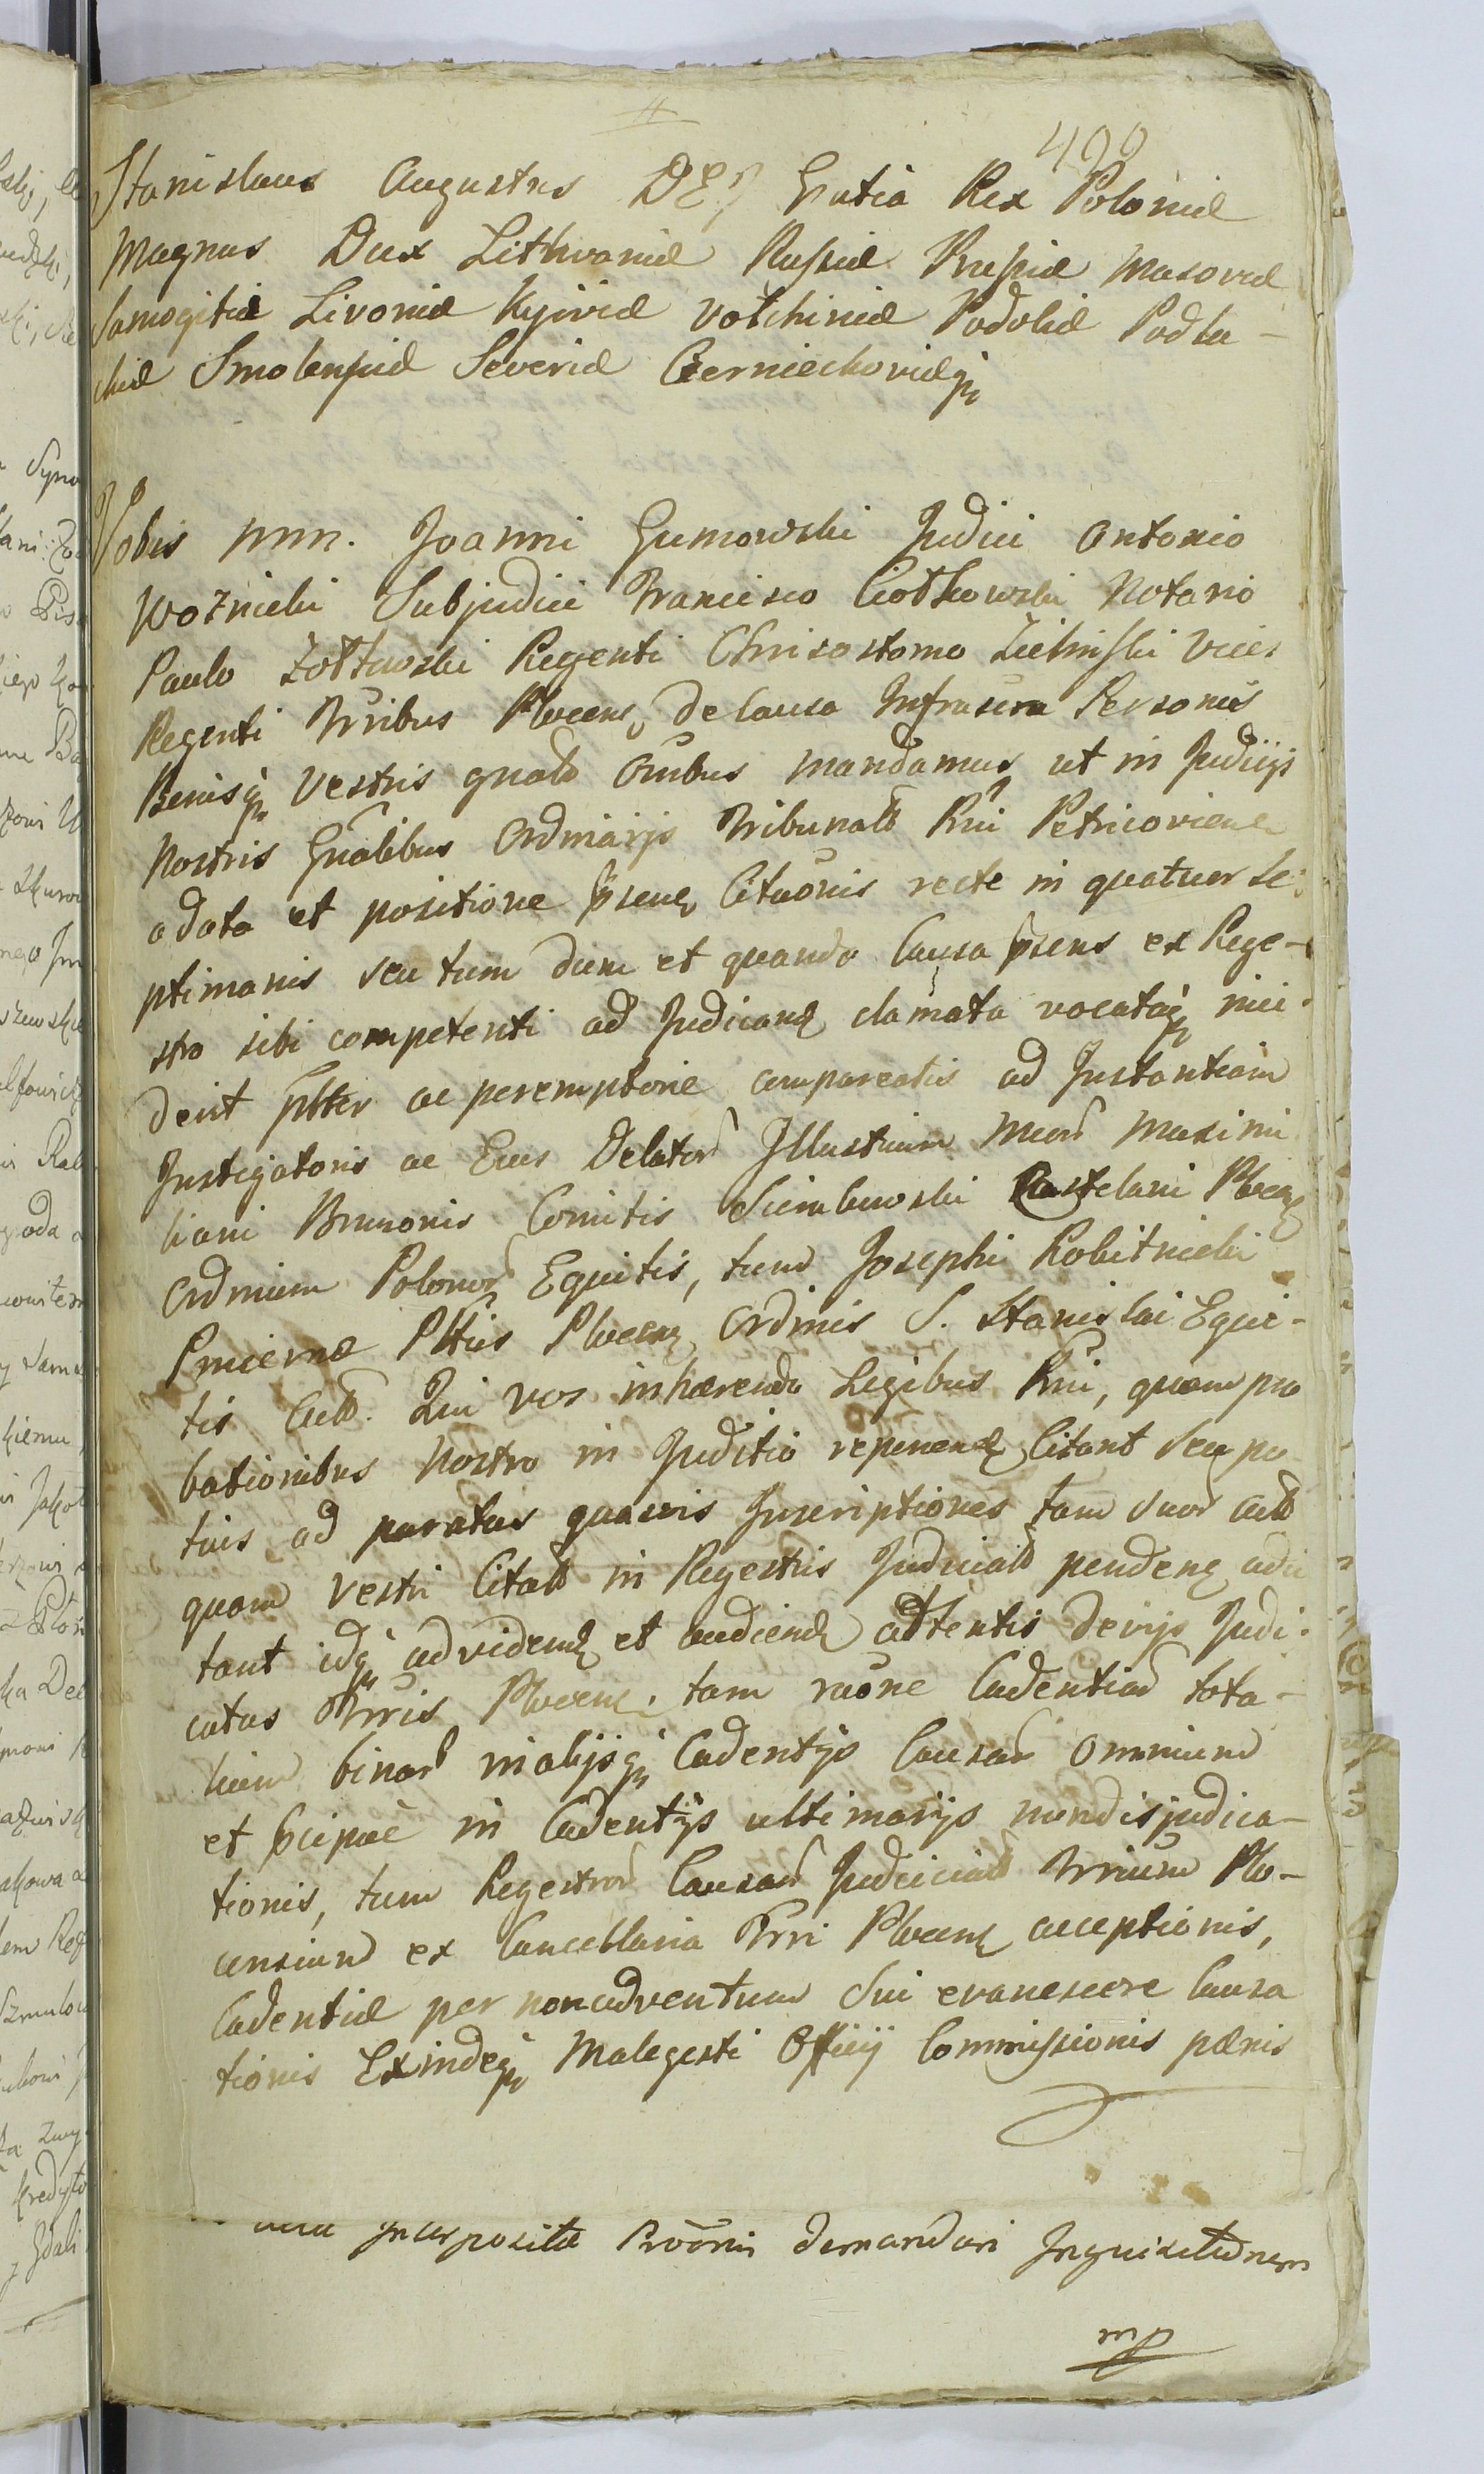 490
Stanislaus Augustus DEI Gratia Rex Poloniæ
Magnus Dux Lithvaniæ Rusſiæ Prusſiæ Masoviæ
Samogitiæ Livoniæ Kyjoviæ Volchiniæ Podoliæ Podla-
chiæ Smolensſiæ Severiæ Czerniechoviæq
Vobis mm. Joanni Gumowski Judici Antonio
Woznicki Subjudici Francisco Ciołkowski Notario
Paulo Zołtowski Regenti Chrisostomo Zieliński Vices
Regenti Trribus Plocens de Causa Infrascra Personis
Bonisq Vestris gnalib Omibus mandamus ut in Judicijs
Nostris Gnalibus Ordinarijs Tribunalib Rni Petricoviens
a data et positione pñsens Citaõnis recte in quatuor Se:
ptimanis seu tum dum et quando Causa pñsens ex Rege-
stro sibi competenti ad Judicand clamata vocataq inci-
derit pltter ac peremptorie compareatis ad Instantiam
Instigatoris ac Eius Delator Illustrium Mcor Maximi
liani Brunonis Comitis Siemborski Castelani Plocens
Ordinum Polonor Equitis, tum Josephi Robitnicki
Pincernæ Pttus Plocens Ordinis S. Stanislai Equi-
tis Actt. Qui vos inhærendo Legibus Rni, quam pro
bationibus Nostro in Juditio reponend Citant Seu po
tius ad paratas quasvis Inscriptiones tam Suor Actt
quam Vestri Citatt in Regestris Judiciatt pendens adci
tant idq ad vidend et audiend attentis devijs Judi-
catus Trris Plocens, tam raõne Cadentiar tota-
lium binar in alijsq Cadentijs Causar Omnium
et pcipuè in Cadentijs ultimarijs nondisjudica-
tionis, tum Regestror Causar Judiciatt Trrium Plo-
censium ex Cancellaria Trri Plocens acceptionis,
Cadentiæ per non adventum Sui evanescere Causa
tionis Exindeq Malegesti Officij Commisſionis pænis
Interpositæ Proõnis demandari Inquisitionem
mp